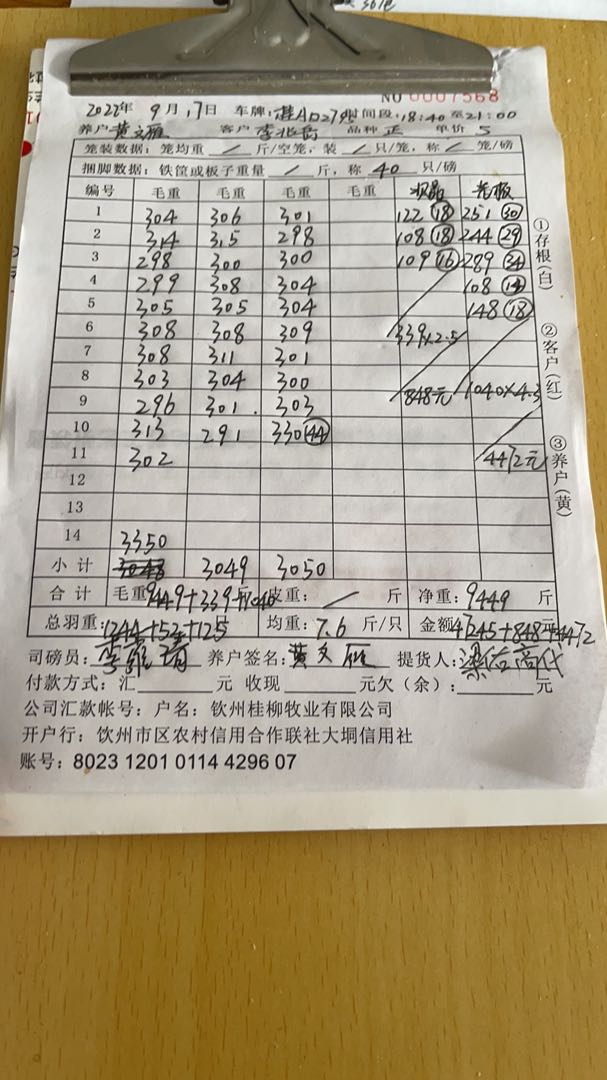 NO 0007568
2022年 9月17日 车牌: 时间段: 18:40至21:00
养户 黄文雁 客户 李兆 品种 正 单价 5
笼装数据: 笼均重 / 斤/空笼, 装 / 只/笼, 称 / 笼/磅
捆脚数据: 铁筐或板子重量 / 斤, 称 40 只/磅
编号 毛重 毛重 毛重 毛重 光板
1 304 306 301 122 (18) 251 (30)
2 314 315 298 108 (18) 244 (29)
3 298 300 300 109 (16) 289 (34)
4 299 308 304 108 (14)
5 305 305 304 148 (18)
6 308 308 309 339×2.5
7 308 311 301
8 303 304 300 848元 1040×4.3
9 296 301 303
10 313 291 330 (44)
11 302 4472元
12
13
14 3350
小计 3048 3049 3050
合计 毛重: 9449+339+1040 皮重: / 斤 净重: 9449 斤
总羽重: 1244+52+125 均重: 7.6 斤/只 金额 47245+848+4472
司磅员: 养户签名: 黄文雁 提货人:
付款方式: 汇 元 收现 元欠(余): 元
公司汇款帐号: 户名: 钦州桂柳牧业有限公司
开户行: 钦州市区农村信用合作联社大垌信用社
账号: 8023 1201 0114 4296 07
①存根(白)
②客户(红)
③养户(黄)